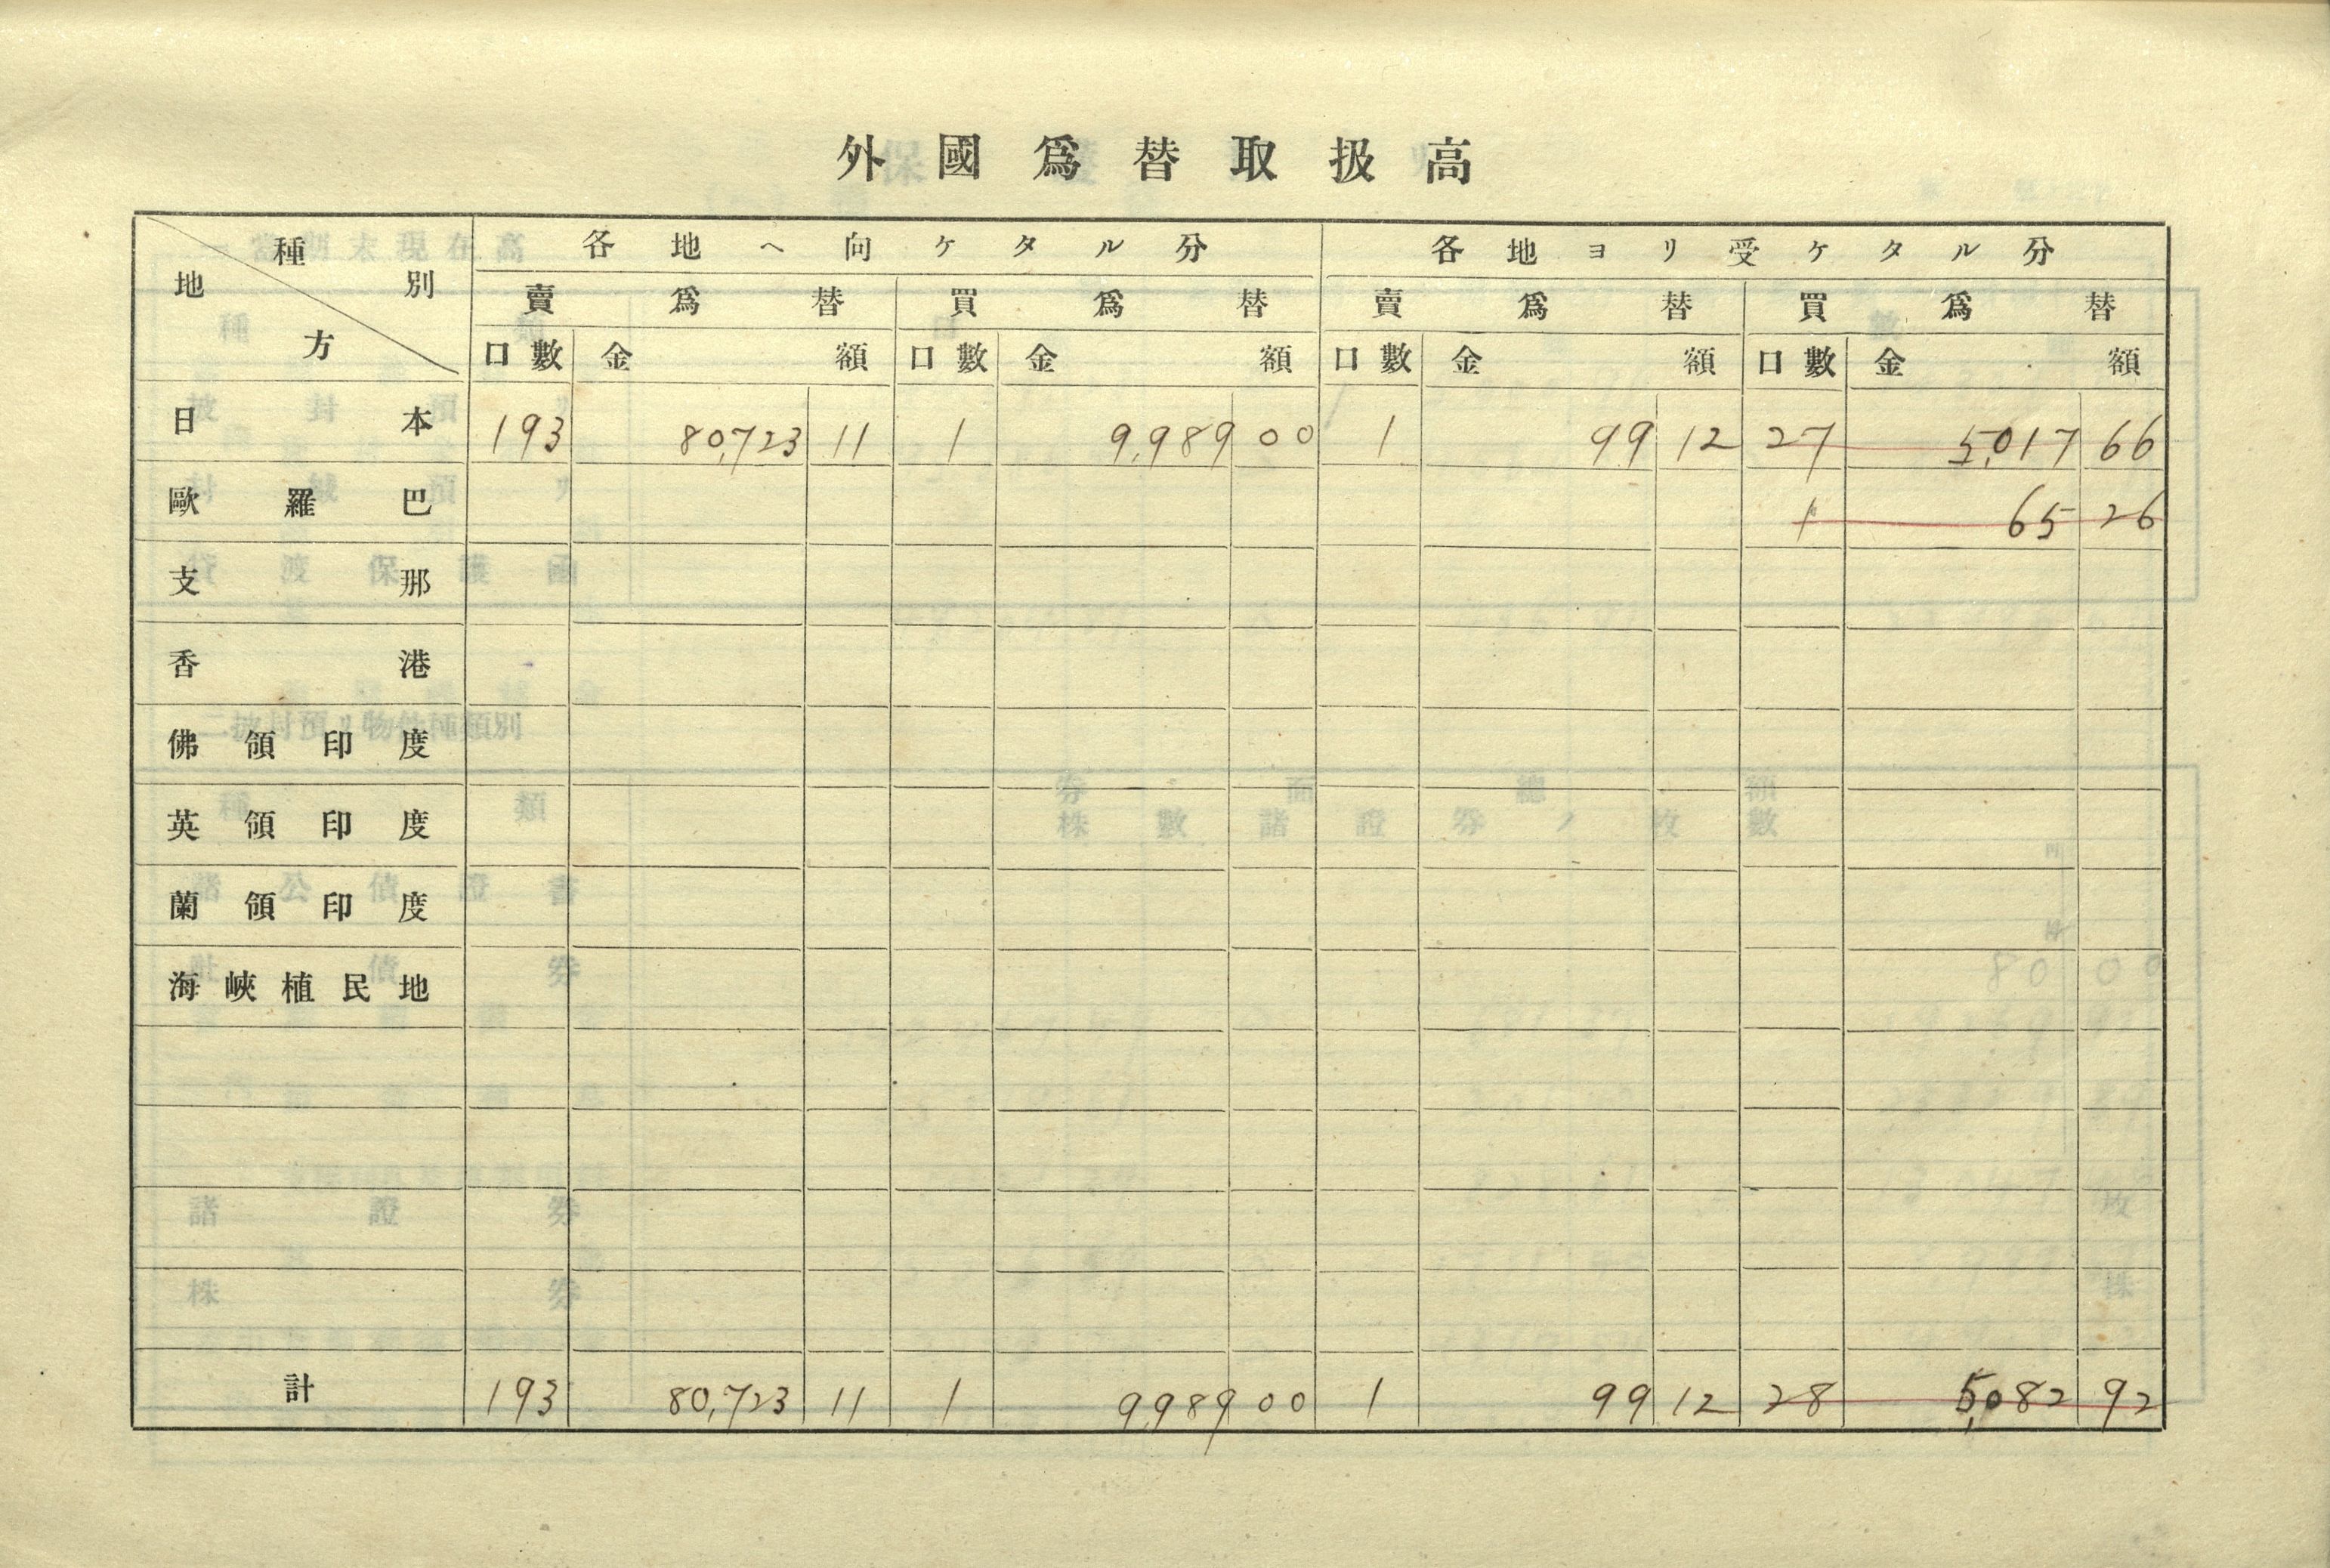 外國爲替取扱高
種別 地方 各地ヘ向ケタル分 各地ヨリ受ケタル分
賣爲替 買爲替 賣爲替 買爲替
口數 金額 口數 金額 口數 金額 口數 金額
日本 193 80,723 11 1 9,989 00 1 99 12 27 5,017 66
歐羅巴 1 65 26
支那
香港
佛領印度
英領印度
蘭領印度
海峽植民地
計 193 80,723 11 1 9,989 00 1 99 12 28 5,082 92